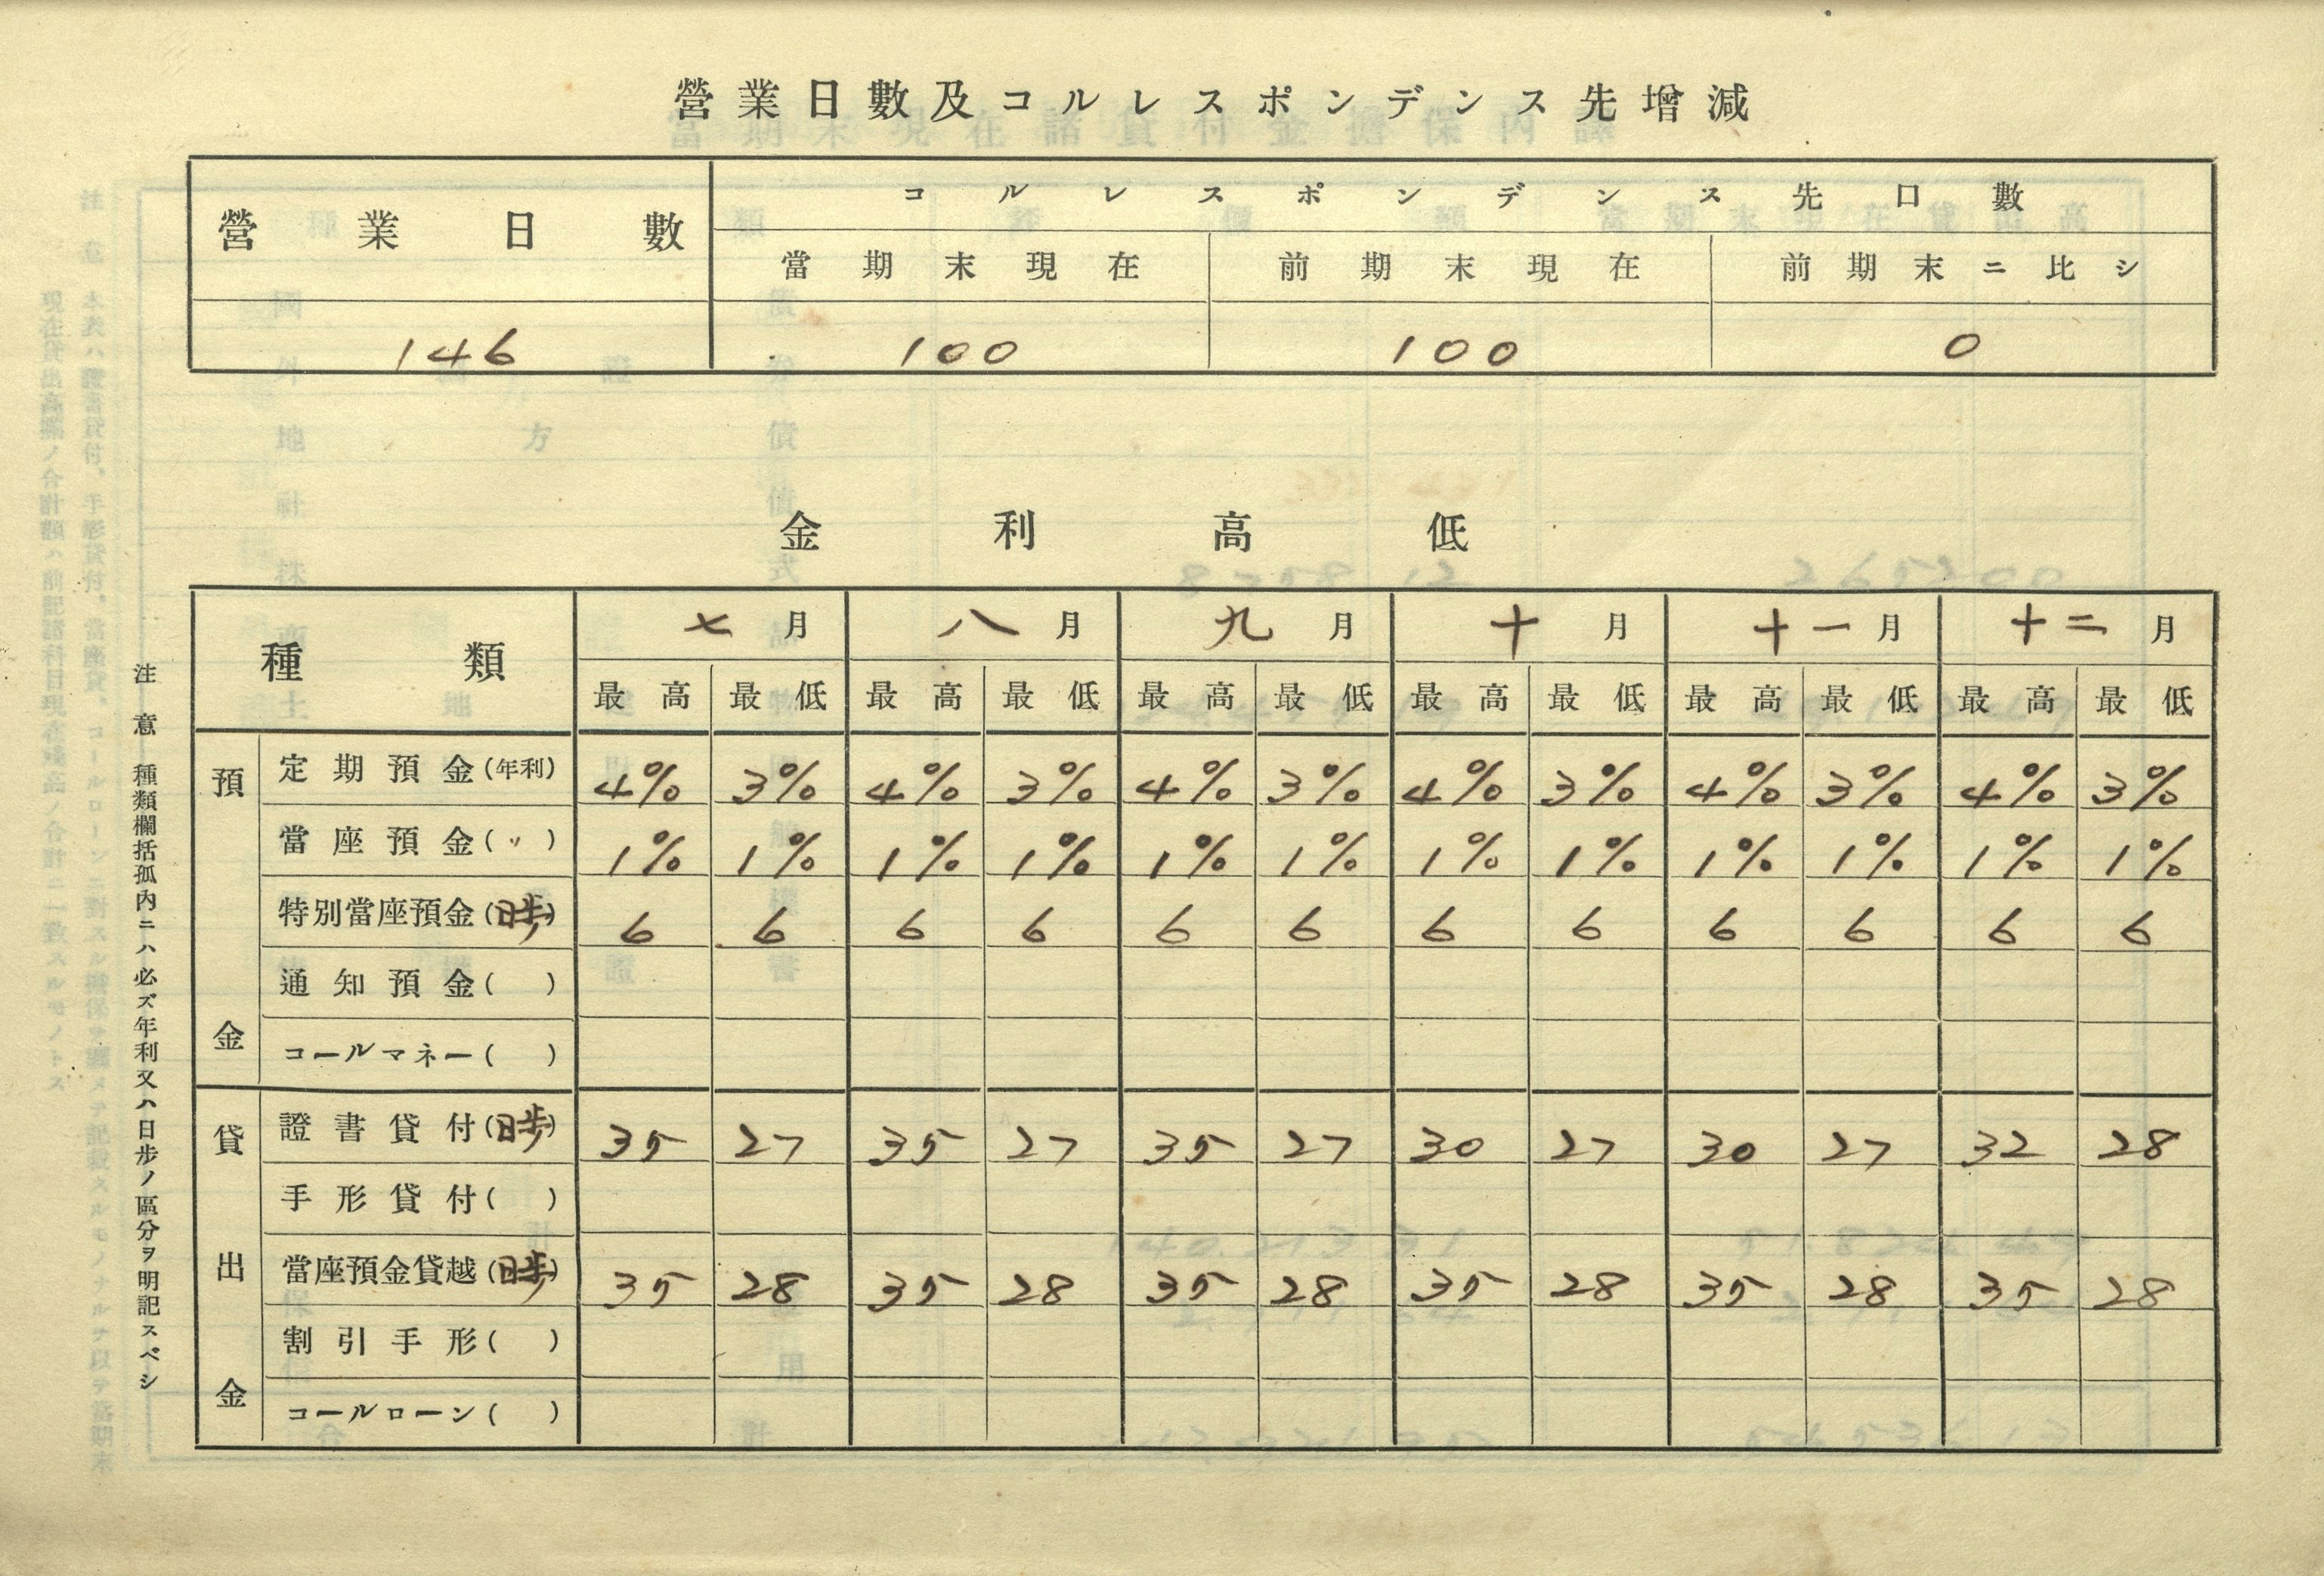 營業日數及コルレスポンデンス先增減
營業日數 コルレスポンデンス先口數
當期末現在 前期末現在 前期末ニ比シ
146 100 100 0
金利高低
種類 七月 八月 九月 十月 十一月 十二月
最高 最低 最高 最低 最高 最低 最高 最低 最高 最低 最高 最低
預金
定期預金(年利) 4% 3% 4% 3% 4% 3% 4% 3% 4% 3% 4% 3%
當座預金(〃) 1% 1% 1% 1% 1% 1% 1% 1% 1% 1% 1% 1%
特別當座預金(日步) 6 6 6 6 6 6 6 6 6 6 6 6
通知預金( )
コールマネー( )
貸出金
證書貸付(日步) 35 27 35 27 35 27 30 27 30 27 32 28
手形貸付( )
當座預金貸越(日步) 35 28 35 28 35 28 35 28 35 28 35 28
割引手形( )
コールローン( )
注意 種類欄括孤內ニハ必ズ年利又ハ日步ノ區分ヲ明記スベシ